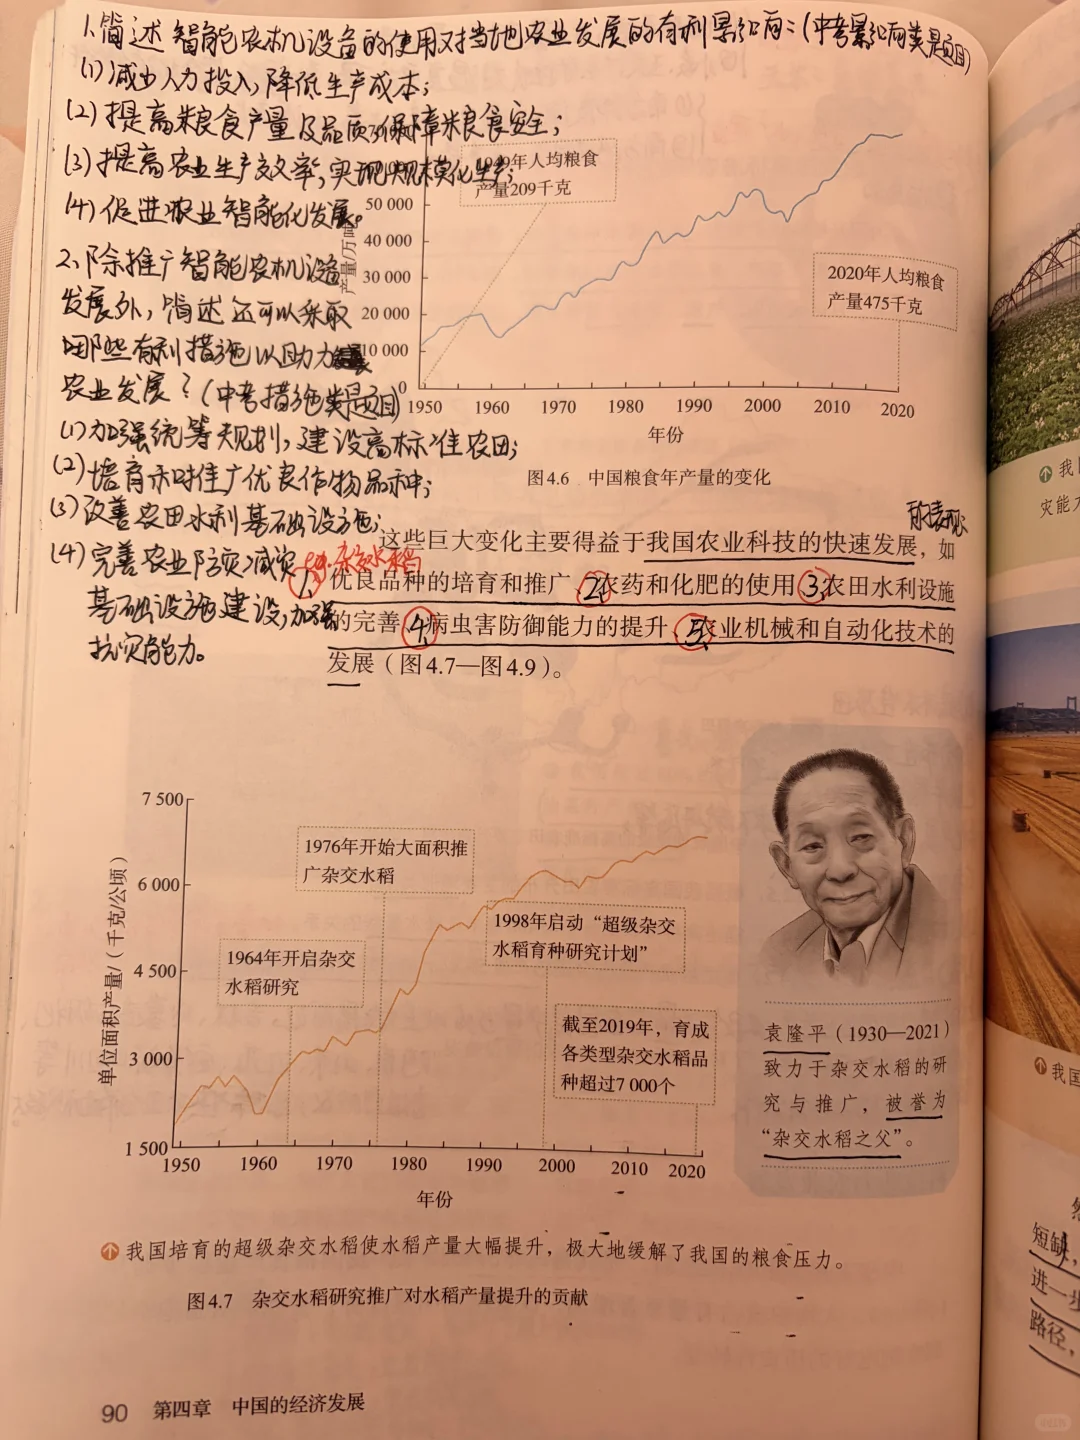 1.简述智能农机设备的使用对当地农业发展的有利影响:(中考影响类题目)
(1)减少人力投入,降低生产成本;
(2)提高粮食产量及品质,保障粮食安全;
(3)提高农业生产效率,实现规模化生产;
(4)促进农业智能化发展。
2.除推广智能农机设备
发展外,简述还可以采取
哪些有利措施以助力
农业发展?(中考措施类题目)
(1)加强统筹规划,建设高标准农田;
(2)培育和推广优良作物品种;
(3)改善农田水利基础设施;
(4)完善农业防灾减灾
基础设施建设,加强
抗灾能力。
1949年人均粮食
产量209千克
产量/万
50 000
40 000
30 000
20 000
10 000
0
2020年人均粮食
产量475千克
1950 1960 1970 1980 1990 2000 2010 2020
年份
图4.6 中国粮食年产量的变化
的表现
这些巨大变化主要得益于我国农业科技的快速发展,如
杂交水稻
1.优良品种的培育和推广、2.农药和化肥的使用、3.农田水利设施
的完善、4.病虫害防御能力的提升、5.农业机械和自动化技术的
发展(图4.7—图4.9)。
单位面积产量/(千克/公顷)
7 500
6 000
4 500
3 000
1 500
1976年开始大面积推
广杂交水稻
1964年开启杂交
水稻研究
1998年启动“超级杂交
水稻育种研究计划”
截至2019年,育成
各类型杂交水稻品
种超过7 000个
1950 1960 1970 1980 1990 2000 2010 2020
年份
袁隆平(1930—2021)
致力于杂交水稻的研
究与推广,被誉为
“杂交水稻之父”。
我国培育的超级杂交水稻使水稻产量大幅提升,极大地缓解了我国的粮食压力。
图4.7 杂交水稻研究推广对水稻产量提升的贡献
90 第四章 中国的经济发展
我
灾能
我国
短缺,
进一步
路径,